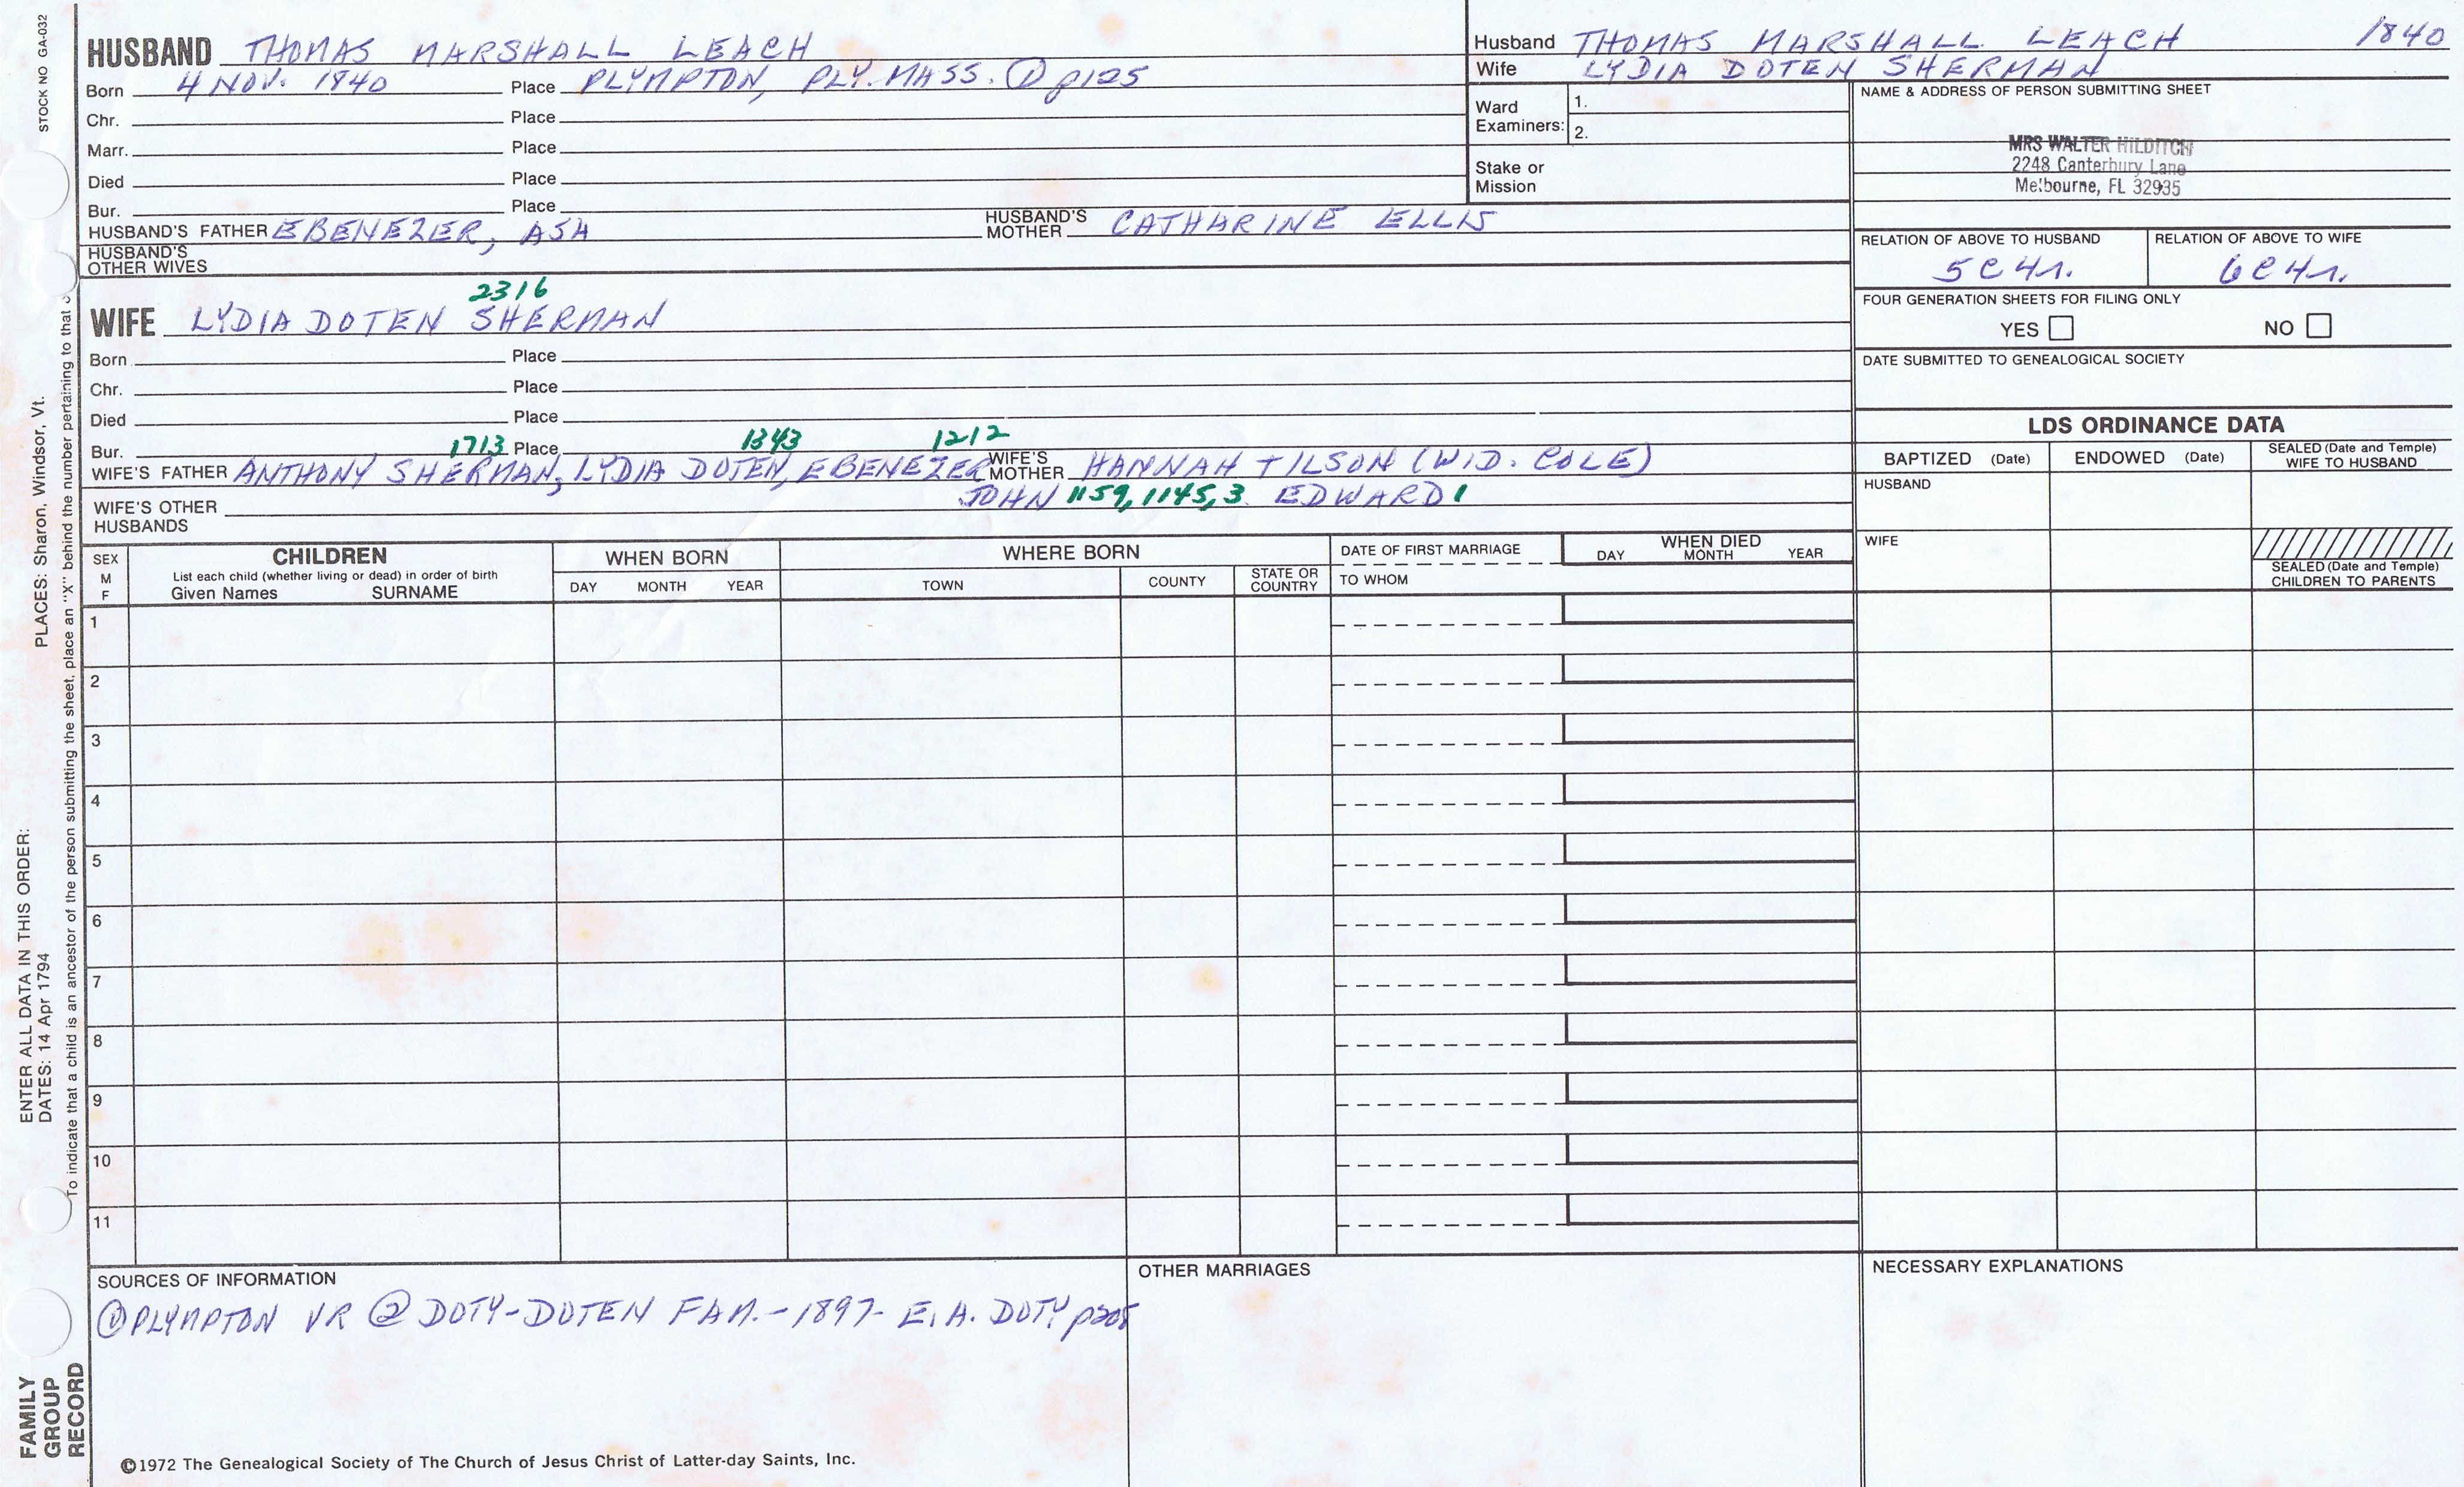 STOCK NO GA-032
PLACES: Sharon, Windsor, Vt.
ENTER ALL DATA IN THIS ORDER:
DATES: 14 Apr 1794
To indicate that a child is an ancestor of the person submitting the sheet, place an "X" behind the number pertaining to that
FAMILY GROUP RECORD
HUSBAND THOMAS MARSHALL LEACH
Born 4 NOV. 1840 Place PLYMPTON, PLY. MASS. ① p125
Chr. Place
Marr. Place
Died Place
Bur. Place
HUSBAND'S FATHER EBENEZER, ASA HUSBAND'S MOTHER CATHARINE ELLIS
HUSBAND'S OTHER WIVES
2316
WIFE LYDIA DOTEN SHERMAN
Born Place
Chr. Place
Died Place
Bur. 1713 Place 1343 1212
WIFE'S FATHER ANTHONY SHERMAN, LYDIA DOTEN, EBENEZER WIFE'S MOTHER HANNAH TILSON (WID. COLE)
JOHN 1159, 1145, 3 EDWARD 1
WIFE'S OTHER HUSBANDS
Husband THOMAS MARSHALL LEACH 1840
Wife LYDIA DOTEN SHERMAN
Ward Examiners: 1.
2.
Stake or Mission
NAME & ADDRESS OF PERSON SUBMITTING SHEET
MRS WALTER HILDITCH
2248 Canterbury Lane
Melbourne, FL 32935
RELATION OF ABOVE TO HUSBAND RELATION OF ABOVE TO WIFE
5C4r. 6C4r.
FOUR GENERATION SHEETS FOR FILING ONLY
YES NO
DATE SUBMITTED TO GENEALOGICAL SOCIETY
LDS ORDINANCE DATA
BAPTIZED (Date) ENDOWED (Date) SEALED (Date and Temple) WIFE TO HUSBAND
HUSBAND
WIFE
SEALED (Date and Temple) CHILDREN TO PARENTS
SEX M F
CHILDREN
List each child (whether living or dead) in order of birth
Given Names SURNAME
WHEN BORN
DAY MONTH YEAR
WHERE BORN
TOWN COUNTY STATE OR COUNTRY
DATE OF FIRST MARRIAGE
TO WHOM
WHEN DIED
DAY MONTH YEAR
1
2
3
4
5
6
7
8
9
10
11
SOURCES OF INFORMATION
① PLYMPTON VR ② DOTY-DOTEN FAM. - 1897 - E.A. DOTY p205
OTHER MARRIAGES
NECESSARY EXPLANATIONS
©1972 The Genealogical Society of The Church of Jesus Christ of Latter-day Saints, Inc.